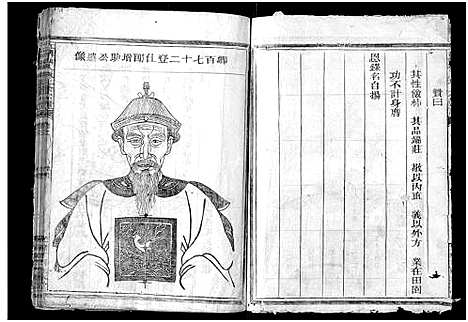 贊曰
其性儉朴 其品端莊 敬以內直 義以外方 業在田園
功不計身磨
恩錄名自揚
聯百七十二登仕增助公遺像